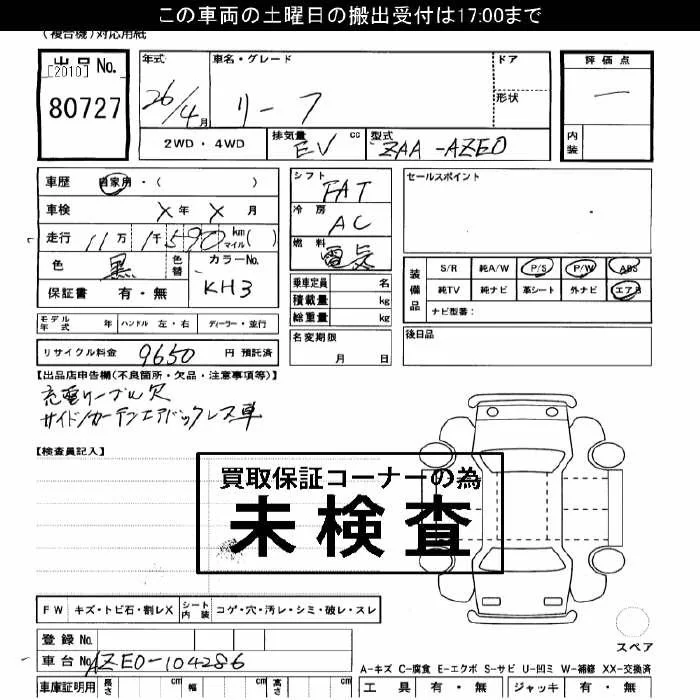 この車両の土曜日の搬出受付は17:00まで
(複合機)対応用紙
出品No.
[2010]
80727
年式 車名・グレード ドア
26/4月 リーフ 形状
2WD・4WD 排気量 EV cc 型式 ZAA-AZE0
評価点
―
内装
車歴 自家用・( )
車検 X年 X月
走行 11万 1千590 km マイル( )
色 黒 色替 カラーNo. KH3
保証書 有・無
シフト FAT
冷房 AC
燃料 電気
乗車定員 名
積載量 kg
総重量 kg
セールスポイント
装備品 S/R 純A/W P/S P/W ABS
純TV 純ナビ 革シート 外ナビ エアB
ナビ型番:
モデル年式 年 ハンドル 左・右 ディーラー・並行
名変期限
月 日
後日品
リサイクル料金 9650 円 預託済
【出品店申告欄(不良箇所・欠品・注意事項等)】
充電ケーブル欠
サイド/カーテンエアバックレス車
【検査員記入】
買取保証コーナーの為
未検査
FW キズ・トビ石・割レX シート内装 コゲ・穴・汚レ・シミ・破レ・スレ
登録No.
車台No. AZE0-104286
車庫証明用 長さ cm 幅 cm 高さ cm
スペア
A-キズ C-腐食 E-エクボ S-サビ U-凹ミ W-補修 XX-交換済
工具 有・無 ジャッキ 有・無